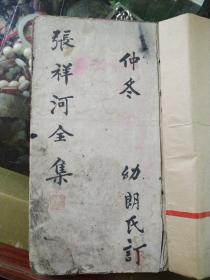 仲冬
幼朗氏訂
張祥河全集